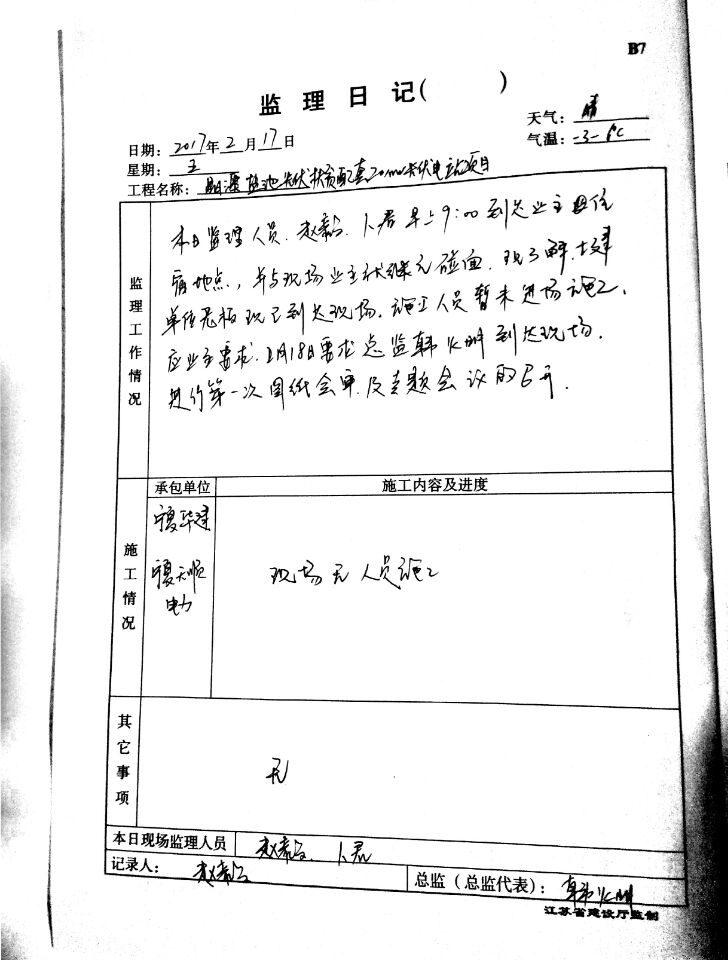 B7
监理日记( )
天气: 晴
日期: 2017年2月17日
气温: -3-6℃
星期: 五
工程名称: 盐池光伏扶贫配套20mw光伏电站项目
监理工作情况
本日监理人员、赵 、卜君早上9:00到达业主
宿地点,并与现场业主 碰面,现了解,
单位 现已到达现场。施工人员暂未进场施工,
应业主要求,2月18日要求总监韩 到达现场。
进行第一次图纸会审及专题会议的召开.
承包单位
施工内容及进度
施工情况
宁夏华建
宁夏天顺
电力
现场无人员施工
其它事项
无
本日现场监理人员
赵 、卜君
记录人: 赵
总监(总监代表): 韩
江苏省建设厅监制